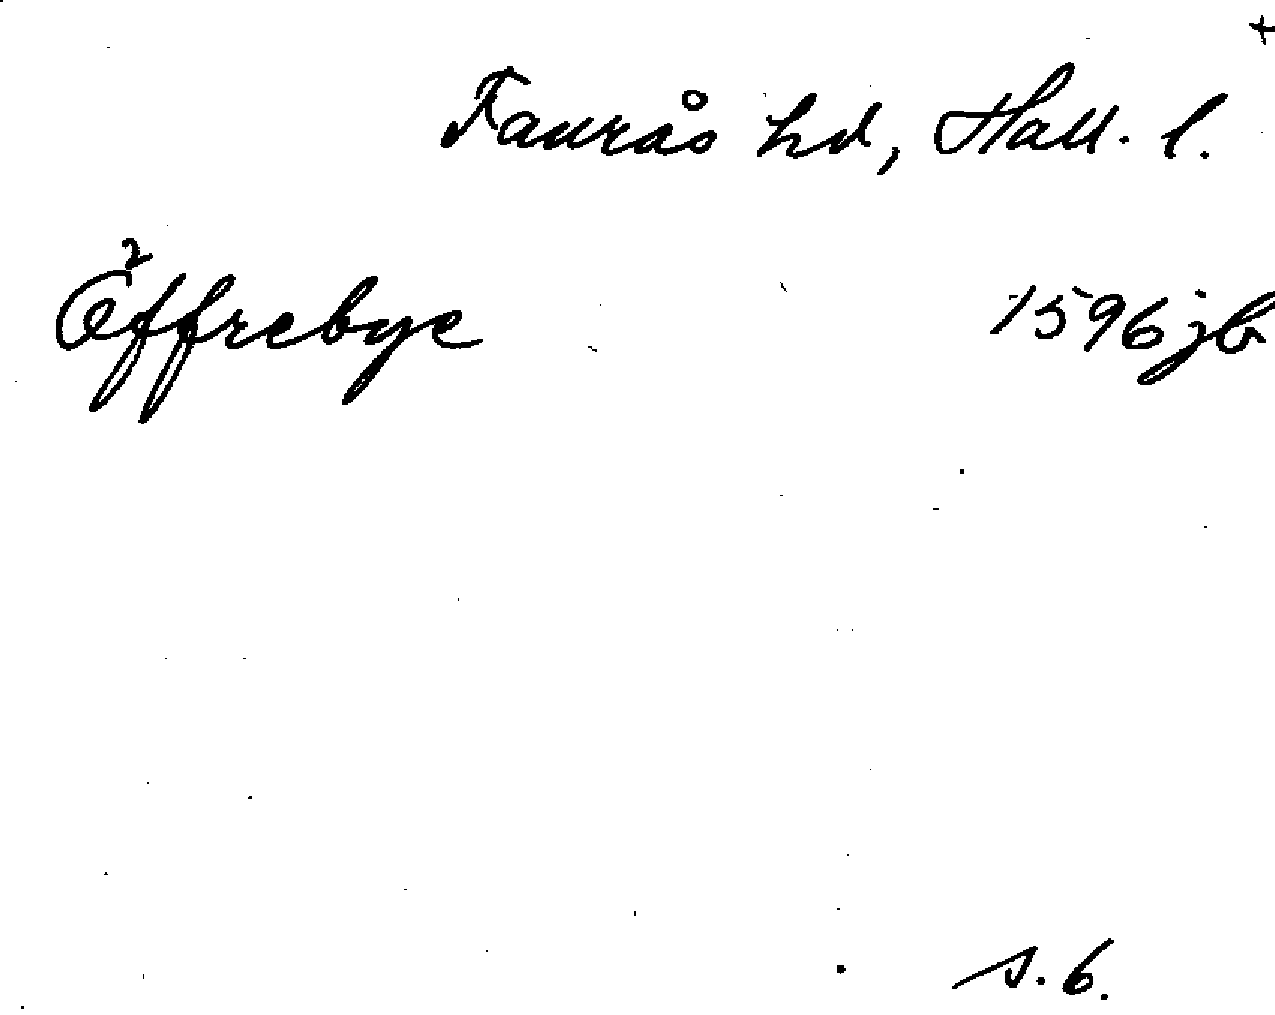 +
Faurås hd, Hall. l.
Öffrebye 1596 jb
s. 6.